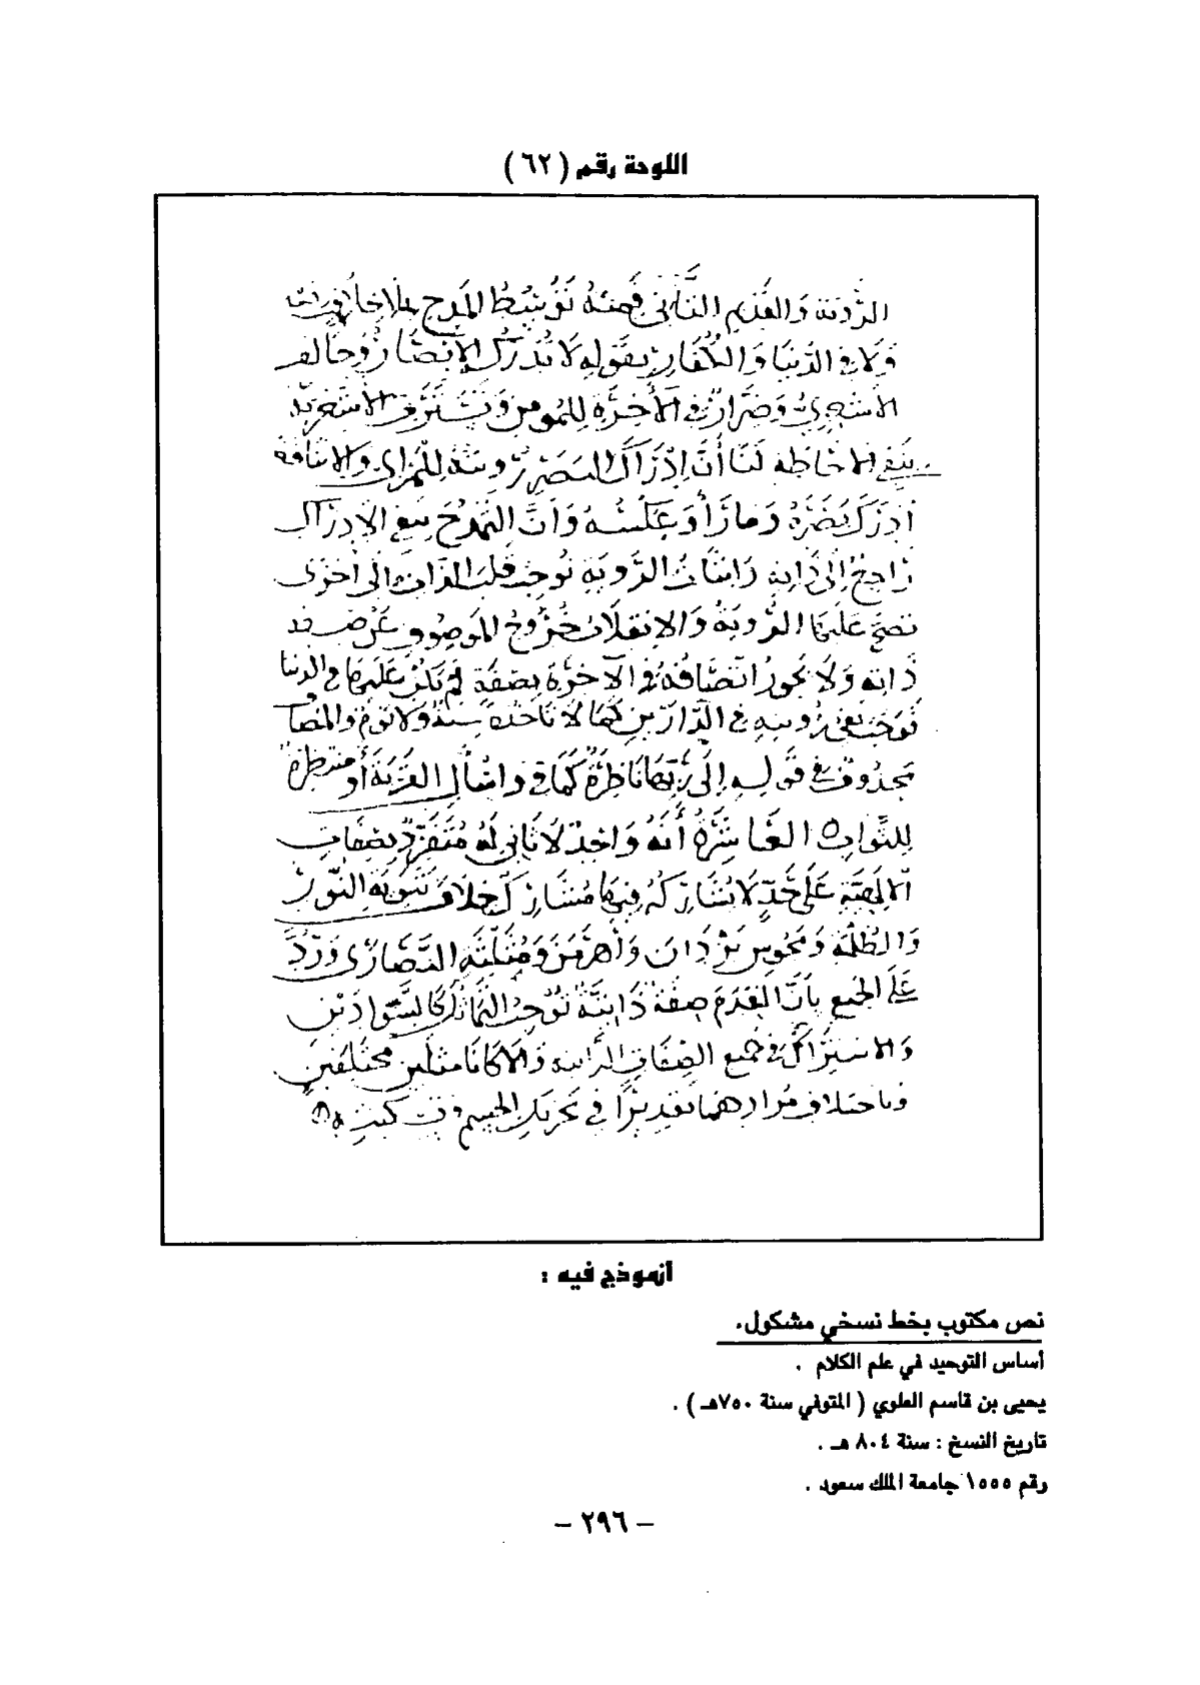 اللوحة رقم ( ٦٢ )
ولا في الدنيا والكفار بقوله لا تدركه الأبصار وخالف
الأشعري وضرار في الآخرة للمومن
بنفي الاحاطة لنا أن إدراك البصر رويته للمراي والاضافة
أدركه بصره وما رأ أو عكسه وأن التمدح بنفي الإدراك
راجع إلى ذاته واثبات الروية توجب قلب الذات الى أخرى
تصح عليها الروية والانقلاب خروج الموصوف عن صفة
ذاته ولا يجوز اتصافه في الآخرة بصفة لم يكن عليها في الدنيا
فوجب نفي رويته في الدارين كما لا تاخذه سنة ولا نوم والمضاف
محذوف في قوله إلى ربها ناظرة كما في واسأل القرية أو منتظرة
للثواب ه العاشرة أنه واحد لا ثاني له متفرد بصفات
الالهية على حد لا يشاركه فيها مشارك خلاف ثنوية النور
والظلمة ومجوس يزدان وأهرمن ومثلثة النصارى ورد
على الجميع بأن القدم صفة ذاتية توجب التماثل كالسوادين
والاشتراك في جميع الصفات الذاتية والا كانا مثلين مختلفين
وباختلاف مرادهما تقديرا في تحريك الجسم
أنموذج فيه :
نص مكتوب بخط نسخي مشكول.
أساس التوحيد في علم الكلام .
يحيى بن قاسم العلوي ( المتوفي سنة ٧٥٠هـ ) .
تاريخ النسخ : سنة ٨٠٤ هـ .
رقم ١٥٥٥ جامعة الملك سعود .
– ٢٩٦ –